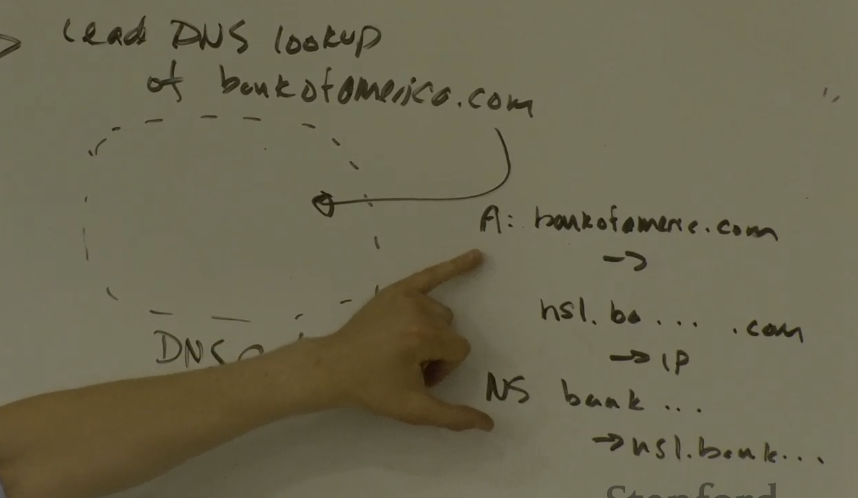 lead DNS lookup
of bankofamerica.com
A: bankofameric.com
→
ns1.ba... .com
→ IP
DNS
NS bank ...
→ ns1.bank...